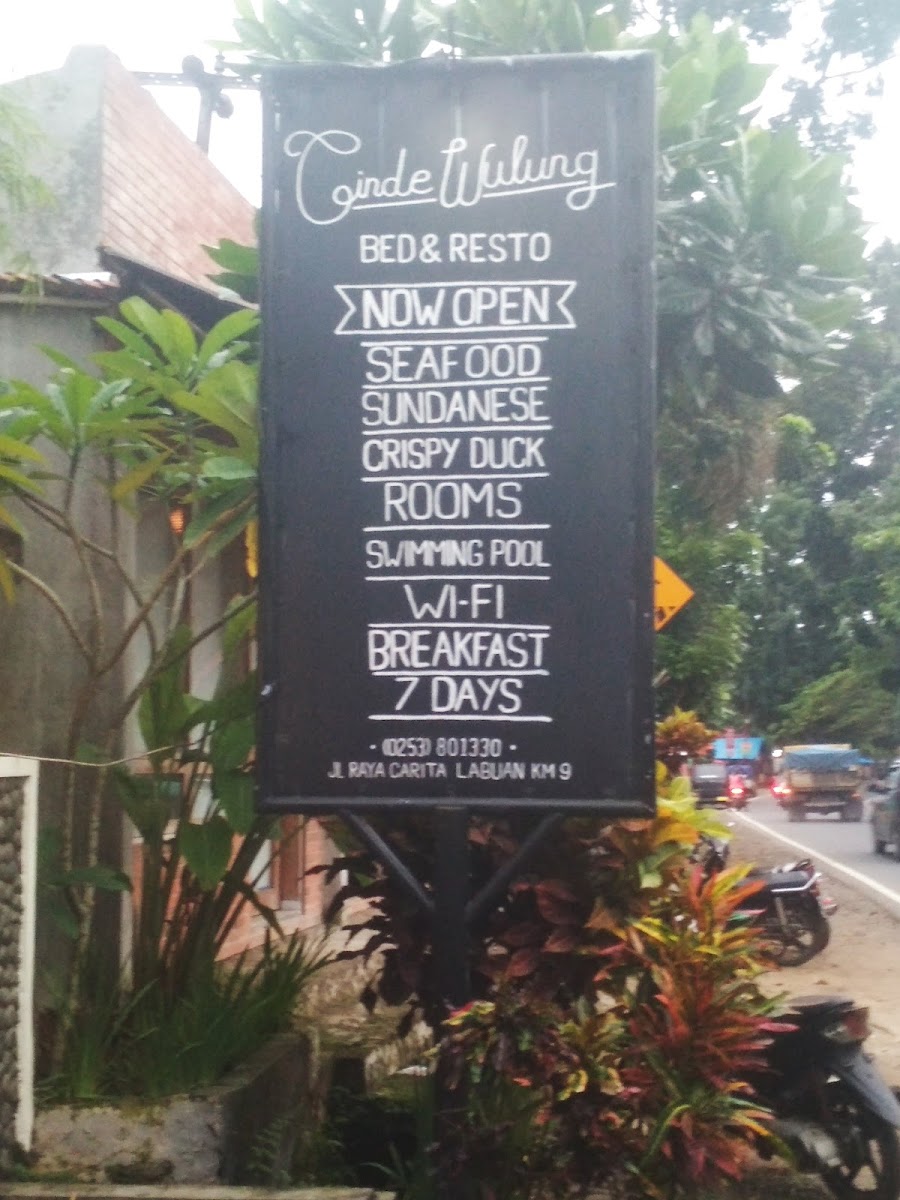 Cinde Wulung
BED & RESTO
NOW OPEN
SEAFOOD
SUNDANESE
CRISPY DUCK
ROOMS
SWIMMING POOL
WI-FI
BREAKFAST
7 DAYS
• (0253) 801330 •
JL RAYA CARITA LABUAN KM 9